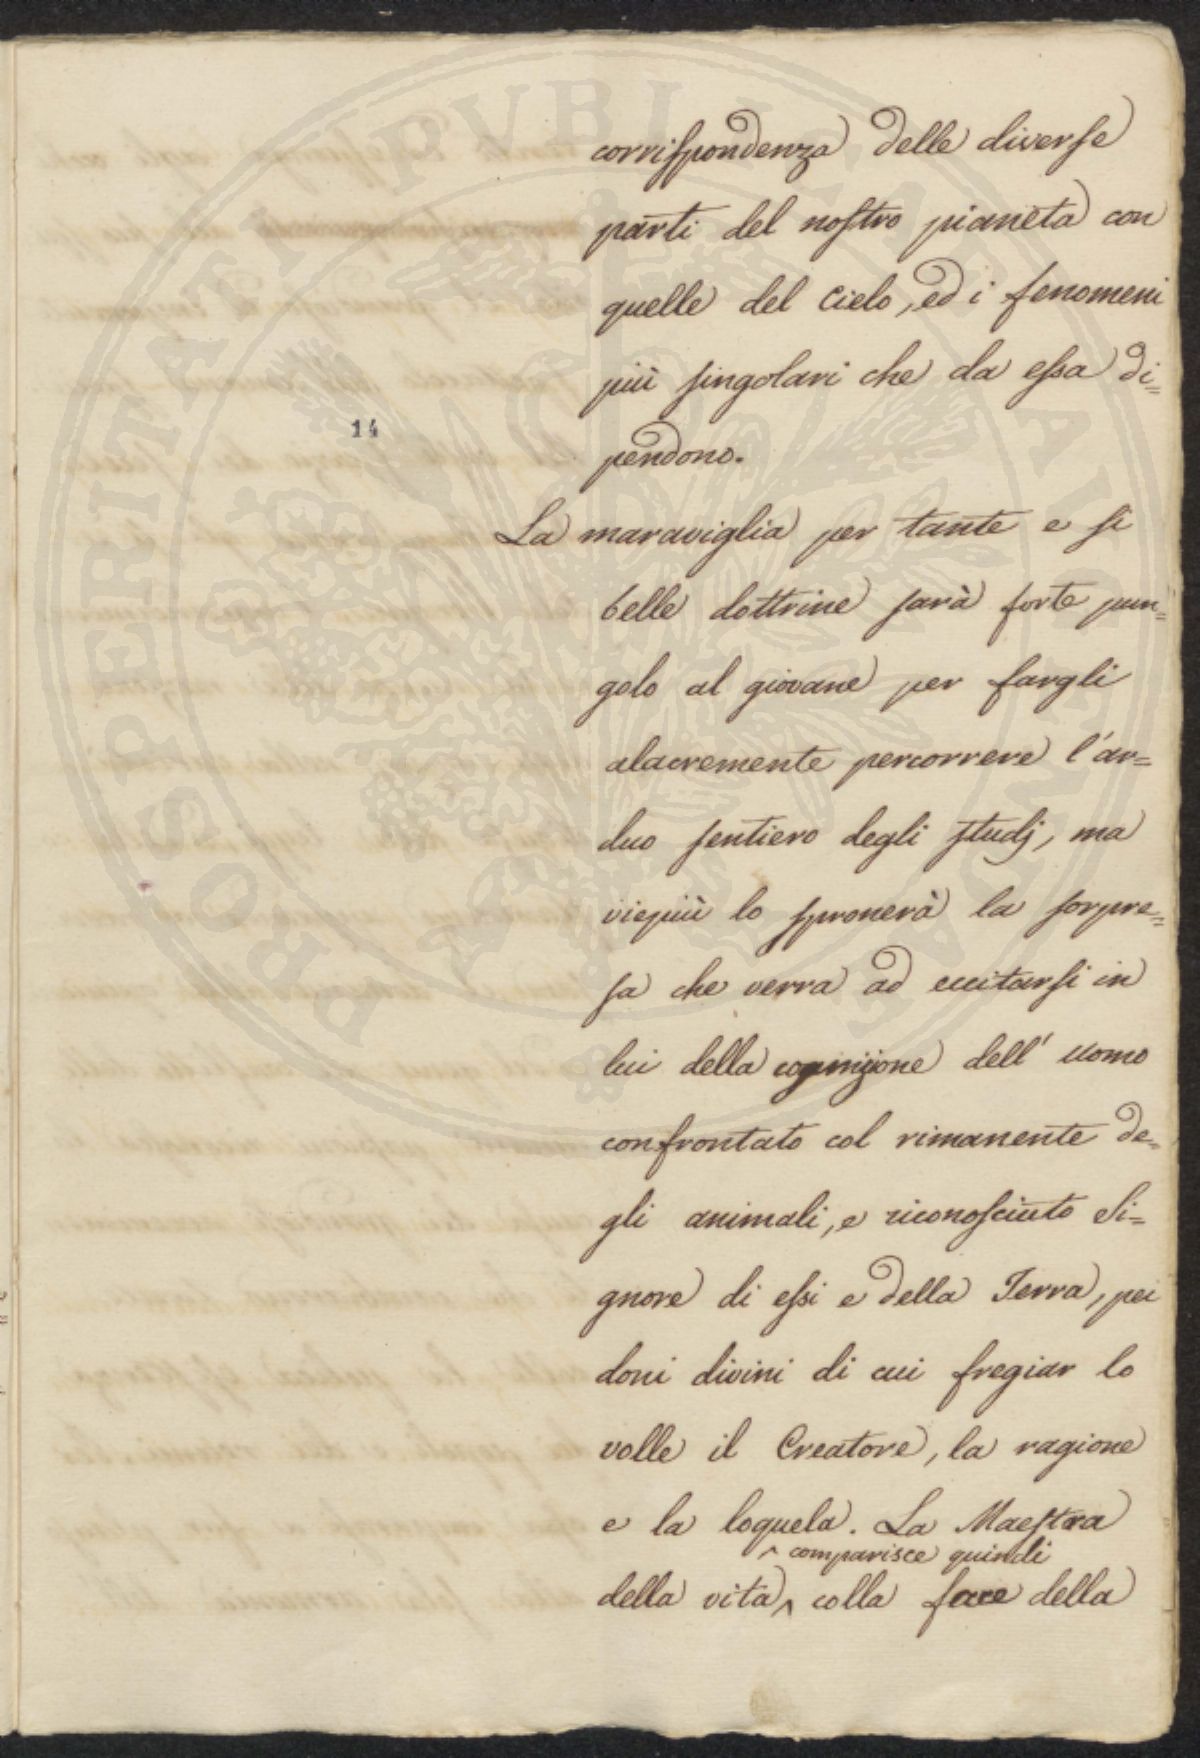 corriſpondenza delle diverſe
parti del noſtro pianeta con
quelle del Cielo, ed i fenomeni
14
più ſingolari che da eſsa di=
pendono.
La maraviglia per tante e ſi
belle dottrine ſarà forte pun=
golo al giovane per fargli
alacremente percorrere l'ar=
duo ſentiero degli ſtudj, ma
viepiù lo ſpronerà la ſorpre=
ſa che verra ad eccitarſi in
lui della cognizione dell' uomo
confrontato col rimanente de=
gli animali, e riconoſciuto Si=
gnore di eſsi e della Terra, pei
doni divini di cui fregiar lo
volle il Creatore, la ragione
e la loquela. La Maeſtra
^ comparisce quindi
della vita ^ colla face della
PROSPERITATI PVBLICAE